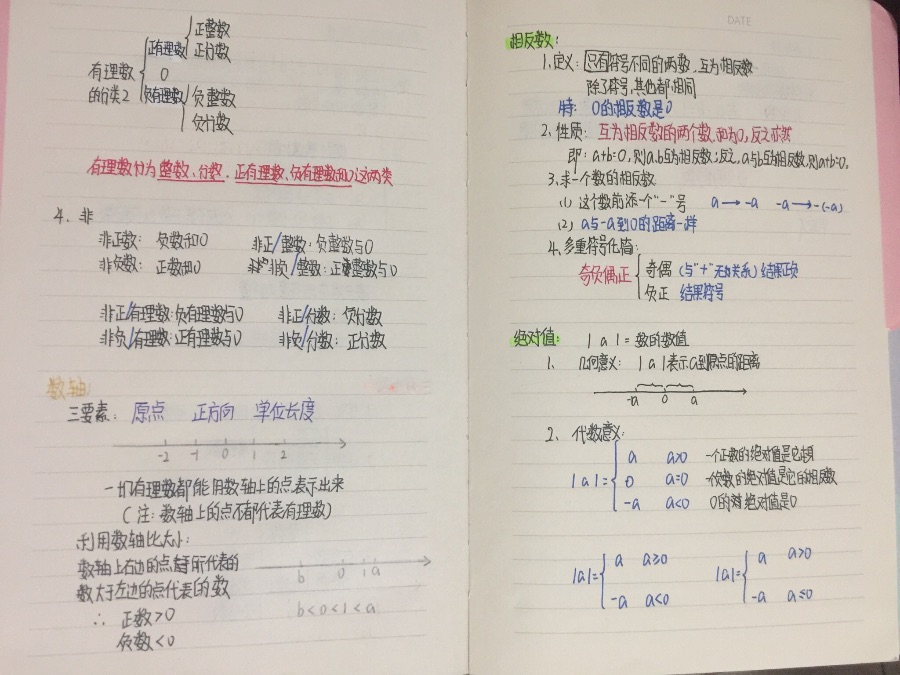 正整数
正有理数 正分数
有理数 0
的分类2 负有理数 负整数
负分数
有理数分为整数、分数、正有理数、负有理数和0这两类
4、非
非正数：负数和0 非正/整数：负整数与0
非负数：正数和0 非负/整数：正整数与0
非正/有理数：负有理数与0 非正/分数：负分数
非负/有理数：正有理数与0 非负/分数：正分数
数轴：
三要素：原点 正方向 单位长度
-2 -1 0 1 2
一切有理数都能用数轴上的点表示出来
（注：数轴上的点不都代表有理数）
利用数轴比大小：
数轴上右边的点所代表的
数大于左边的点代表的数
b 0 1 a
∴ 正数>0 b<0<1<a
负数<0
DATE
相反数：
1、定义：只有符号不同的两数，互为相反数
除了符号，其他都相同
特：0的相反数是0
2、性质：互为相反数的两个数，和为0，反之亦然
即：a+b=0，则a、b互为相反数；反之，a与b互为相反数，则a+b=0。
3、求一个数的相反数
（1）这个数前添一个"-"号 a→-a -a→-(-a)
（2）a与-a到0的距离一样
4、多重符号化简：
奇负偶正 奇偶（与"+"无关系）结果正负
负正 结果符号
绝对值：|a|=数的数值
1、几何意义：|a|表示a到原点的距离
-a 0 a
2、代数意义：
a a>0 一个正数的绝对值是它本身
|a|= 0 a=0 一个负数的绝对值是它的相反数
-a a<0 0的绝对值是0
|a|= a a≥0 |a|= a a>0
-a a<0 -a a≤0